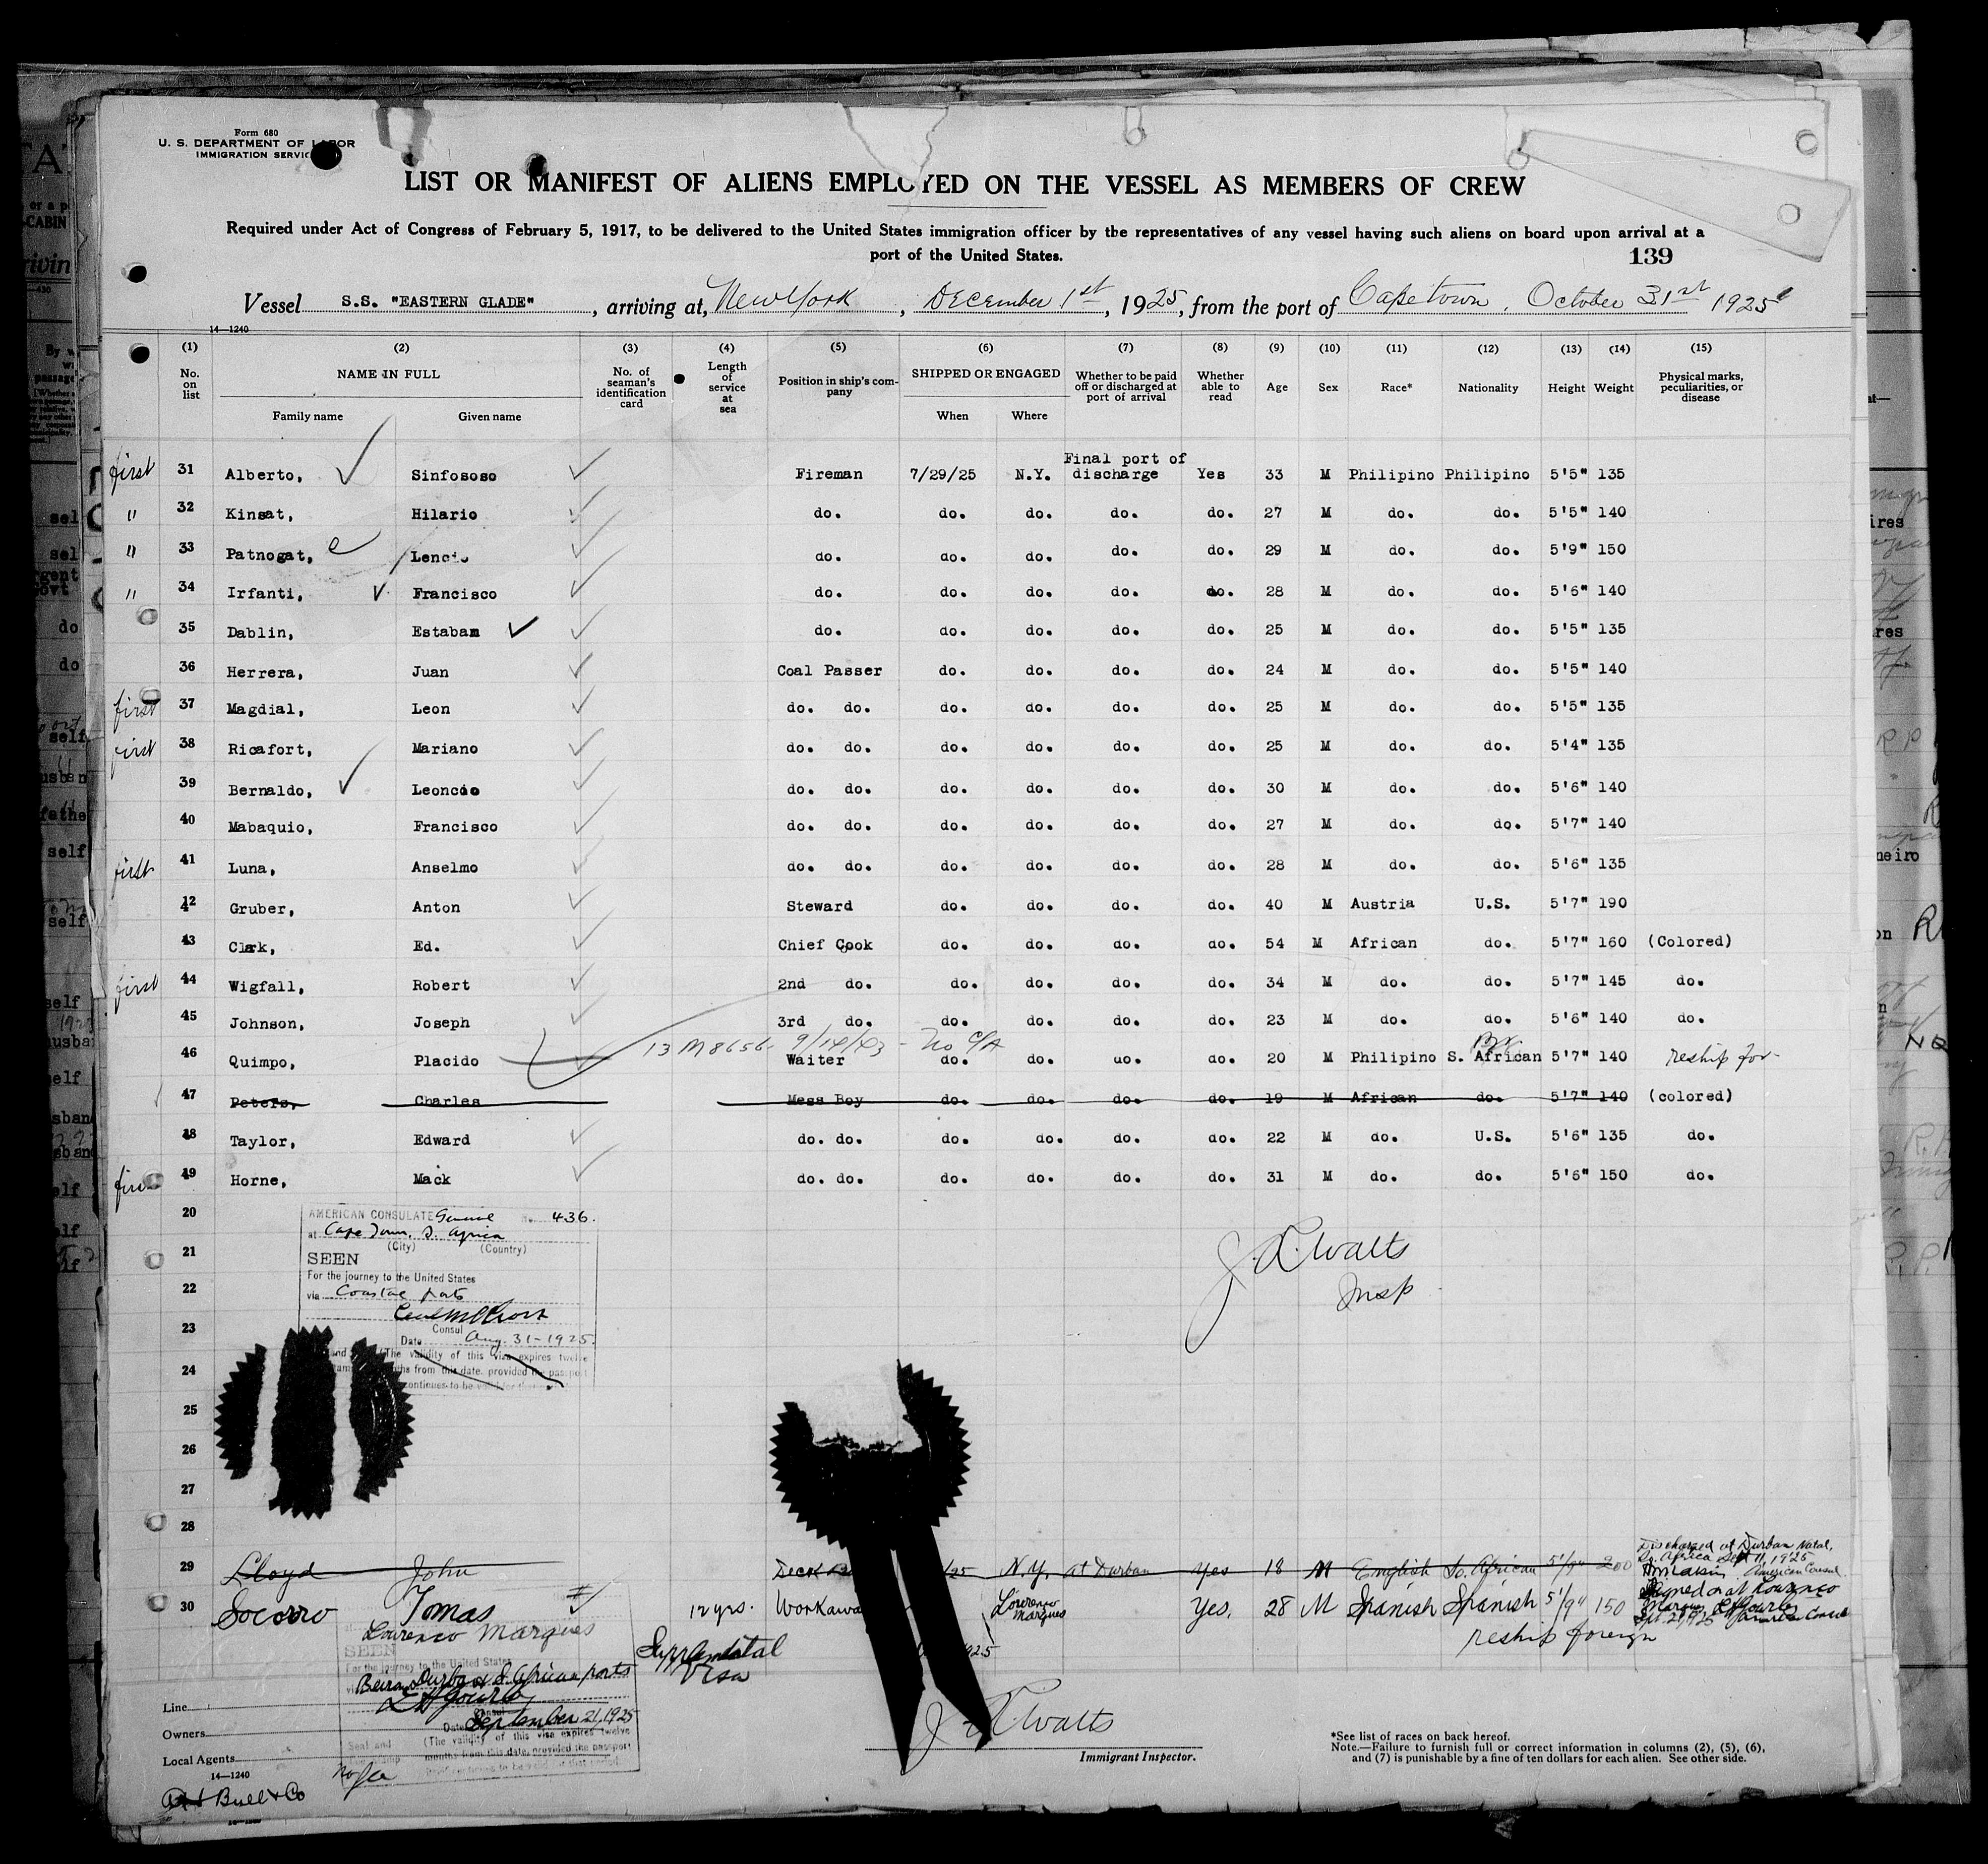 Form 680
U. S. DEPARTMENT OF LABOR
IMMIGRATION SERVICE
LIST OR MANIFEST OF ALIENS EMPLOYED ON THE VESSEL AS MEMBERS OF CREW
Required under Act of Congress of February 5, 1917, to be delivered to the United States immigration officer by the representatives of any vessel having such aliens on board upon arrival at a
port of the United States.
139
Vessel S.S. "EASTERN GLADE", arriving at, New York, December 1st, 1925, from the port of Capetown, October 31st 1925
14—1240
(1) (2) (3) (4) (5) (6) (7) (8) (9) (10) (11) (12) (13) (14) (15)
No. on list NAME IN FULL Family name Given name No. of seaman's identification card Length of service at sea Position in ship's company SHIPPED OR ENGAGED When Where Whether to be paid off or discharged at port of arrival Whether able to read Age Sex Race* Nationality Height Weight Physical marks, peculiarities, or disease
first 31 Alberto, Sinfososo Fireman 7/29/25 N.Y. Final port of discharge Yes 33 M Philipino Philipino 5'5" 135
" 32 Kinsat, Hilario do. do. do. do. do. 27 M do. do. 5'5" 140
" 33 Patnogat, do. do. do. do. do. 29 M do. do. 5'9" 150
" 34 Irfanti, Francisco do. do. do. do. do. 28 M do. do. 5'6" 140
35 Dablin, Estaban do. do. do. do. do. 25 M do. do. 5'5" 135
36 Herrera, Juan Coal Passer do. do. do. do. 24 M do. do. 5'5" 140
first 37 Magdial, Leon do. do. do. do. do. do. 25 M do. do. 5'5" 135
first 38 Ricafort, Mariano do. do. do. do. do. do. 25 M do. do. 5'4" 135
39 Bernaldo, Leoncio do. do. do. do. do. do. 30 M do. do. 5'6" 140
40 Mabaquio, Francisco do. do. do. do. do. do. 27 M do. do. 5'7" 140
first 41 Luna, Anselmo do. do. do. do. do. do. 28 M do. do. 5'6" 135
42 Gruber, Anton Steward do. do. do. do. 40 M Austria U.S. 5'7" 190
43 Clark, Ed. Chief Cook do. do. do. do. 54 M African do. 5'7" 160 (Colored)
first 44 Wigfall, Robert 2nd do. do. do. do. do. 34 M do. do. 5'7" 145 do.
45 Johnson, Joseph 3rd do. do. do. do. do. 23 M do. do. 5'6" 140 do.
13 M8656 9/14/43 - No C/A
46 Quimpo, Placido Waiter do. do. do. do. 20 M Philipino Br. S. African 5'7" 140 reship for-
47 Peters, Charles Mess Boy do. do. do. do. 19 M African do. 5'7" 140 (colored)
48 Taylor, Edward do. do. do. do. do. do. 22 M do. U.S. 5'6" 135 do.
49 Horne, Mack do. do. do. do. do. do. 31 M do. do. 5'6" 150 do.
20
21
22
23
24
25
26
27
28
AMERICAN CONSULATE General No. 436.
at Cape Town, S. Africa
(City) (Country)
SEEN
For the journey to the United States
via Coastal ports
Consul
Date Aug. 31-1925.
(The validity of this visa expires twelve
months from this date, provided the passport
continues to be valid for
J. L. Watts
Insp
29 Lloyd John Deck N.Y. at Durban Yes 18 M English So. African 5'9" 200 Discharged at Durban Natal, So. Africa Sept 11, 1925 American Consul
30 Socorro Tomas 12 yrs. Workaway Lourenco Marques Yes, 28 M Spanish Spanish 5'9" 150 Signed on at Lourenco Marques Sept. 21, 1925 American Consul
reship foreign
Lourenco Marques
SEEN
For the journey to the United States
Beira, Durban & S. African ports
Consul
Date September 21, 1925
Seal and
(The validity of this visa expires twelve
months from this date, provided the passport
No fee
Supplemental
Visa
Line
Owners
Local Agents
14—1240
Bull & Co
J. L. Watts
Immigrant Inspector.
*See list of races on back hereof.
Note.—Failure to furnish full or correct information in columns (2), (5), (6),
and (7) is punishable by a fine of ten dollars for each alien. See other side.